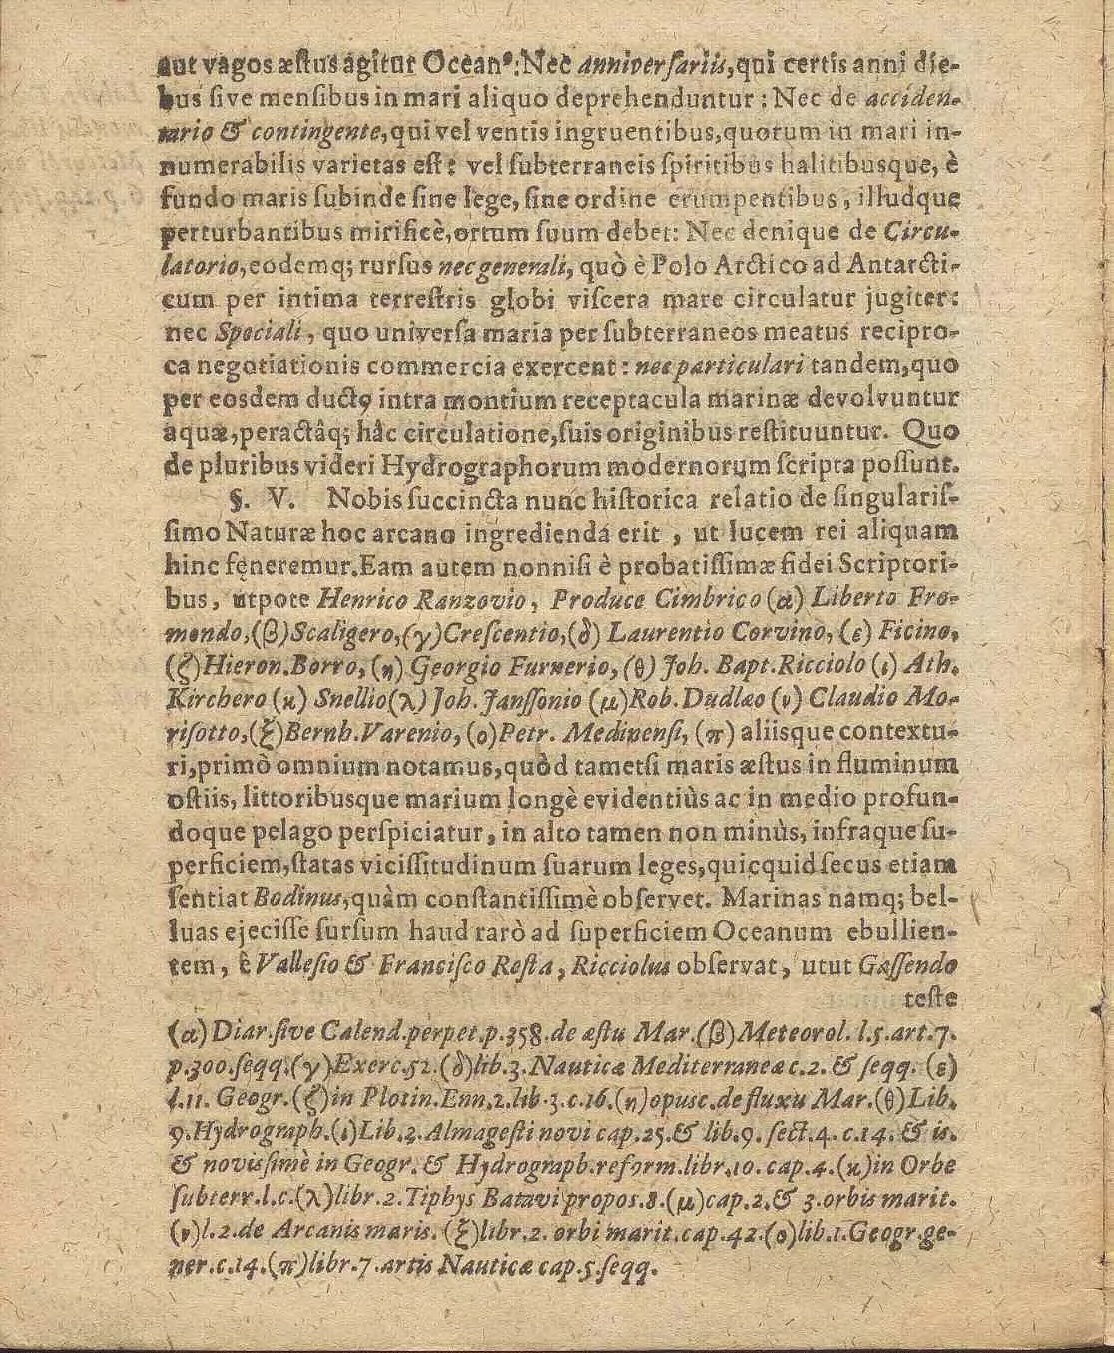 aut vagos æſtus agitur Oceanꝰ: Nec anniverſariis, qui certis anni die-
bus ſive menſibus in mari aliquo deprehenduntur : Nec de acciden-
tario & contingente, qui vel ventis ingruentibus, quorum in mari in-
numerabilis varietas eſt: vel ſubterraneis ſpiritibus halitibusque, è
fundo maris ſubinde ſine lege, ſine ordine erumpentibus, illudque
perturbantibus mirificè, ortum ſuum debet: Nec denique de Circu-
latorio, eodemq; rurſus nec generali, quò è Polo Arctico ad Antarcti-
cum per intima terreſtris globi viſcera mare circulatur jugiter:
nec Speciali, quo univerſa maria per ſubterraneos meatus recipro-
ca negotiationis commercia exercent: nec particulari tandem, quo
per eosdem ductꝰ intra montium receptacula marinæ devolvuntur
aquæ, peractâq; hâc circulatione, ſuis originibus reſtituuntur. Quo
de pluribus videri Hydrographorum modernorum ſcripta poſſunt.
§. V. Nobis ſuccincta nunc hiſtorica relatio de ſingulariſ-
ſimo Naturæ hoc arcano ingredienda erit, ut lucem rei aliquam
hinc fęneremur. Eam autem nonniſi è probatiſſimæ fidei Scriptori-
bus, utpote Henrico Ranzovio, Produce Cimbrico (α) Liberto Fro-
mondo, (β) Scaligero, (γ) Creſcentio, (δ) Laurentio Corvino, (ε) Ficino,
(ζ) Hieron. Borro, (η) Georgio Furnerio, (θ) Joh. Bapt. Ricciolo (ι) Ath.
Kirchero (ϰ) Snellio (λ) Joh. Janſſonio (μ) Rob. Dudlæo (ν) Claudio Mo-
riſotto, (ξ) Bernh. Varenio, (ο) Petr. Medinenſi, (π) aliisque contextu-
ri, primò omnium notamus, quòd tametſi maris æſtus in fluminum
oſtiis, littoribusque marium longè evidentiùs ac in medio profun-
doque pelago perſpiciatur, in alto tamen non minùs, infraque ſu-
perficiem, ſtatas viciſſitudinum ſuarum leges, quicquid ſecus etiam
ſentiat Bodinus, quàm conſtantiſſimè obſervet. Marinas namq; bel-
luas ejeciſſe ſurſum haud rarò ad ſuperficiem Oceanum ebullien-
tem, è Valleſio & Franciſco Reſta, Ricciolus obſervat, utut Gaſſendo
teſte
(α) Diar. ſive Calend. perpet. p. 358. de æſtu Mar. (β) Meteorol. l. 5. art. 7.
p. 300. ſeqq. (γ) Exerc. 52. (δ) lib. 3. Nauticæ Mediterraneæ c. 2. & ſeqq. (ε)
l. 11. Geogr. (ζ) in Plotin. Enn. 2. lib. 3. c. 16. (η) opusc. de fluxu Mar. (θ) Lib.
9. Hydrograph. (ι) Lib. 2. Almageſti novi cap. 25. & lib. 9. ſect. 4. c. 14. & is.
& noviſſimè in Geogr. & Hydrograph. reform. libr. 10. cap. 4. (ϰ) in Orbe
ſubterr. l. c. (λ) libr. 2. Tiphys Batavi propos. 8. (μ) cap. 2. & 3. orbis marit.
(ν) l. 2. de Arcanis maris. (ξ) libr. 2. orbi marit. cap. 42. (ο) lib. 1. Geogr. ge-
ner. c. 14. (π) libr. 7. artis Nauticæ cap. 5. ſeqq.